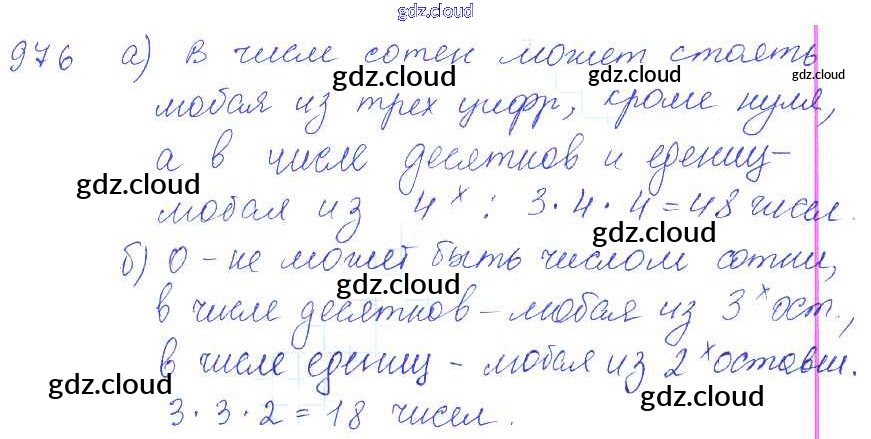 gdz.cloud
976 а) В числе сотен может стоять
gdz.cloud gdz.cloud gdz.cloud
любая из трех цифр, кроме нуля,
а в числе десятков и едениц-
gdz.cloud
любая из 4х : 3·4·4=48 чисел.
gdz.cloud
б) 0 - не может быть числом сотни,
gdz.cloud
в числе десятков - любая из 3х ост.,
в числе едениц - любая из 2х оставш.
gdz.cloud gdz.cloud gdz.cloud
3·3·2=18 чисел.